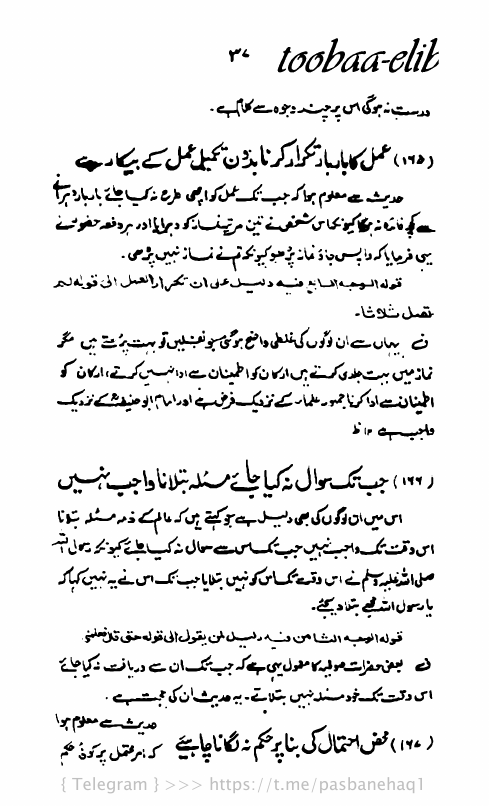 ۳۷ toobaa-elib
درست نہ ہوگی اس پر چند وجوہ سے کلام ہے۔
(۱۶۵) عمل کا بار بار تکرار کرنا بدون تکمیل عمل کے بیکار ہے
حدیث سے معلوم ہوا کہ جب تک عمل کو اچھی طرح نہ کیا جائے بار بار دہرانے
سے کچھ فائدہ نہ ہوگا کیونکہ اس شخص نے تین مرتبہ نماز کو دہرایا اور ہر دفعہ حضور نے
یہی فرمایا کہ واپس جاؤ نماز پڑھو کیونکہ تم نے نماز نہیں پڑھی۔
قوله الوجه السابع فيه دليل على ان تكرار العمل الى قوله لم
تصل ثلاثا۔
ف یہاں سے ان لوگوں کی غلطی واضح ہوگئی جو نفلیں تو بہت پڑھتے ہیں مگر
نماز میں بہت جلدی کرتے ہیں ارکان کو اطمینان سے ادا نہیں کرتے، ارکان کو
اطمینان سے ادا کرنا جمہور علماء کے نزدیک فرض ہے اور امام ابو حنیفہؒ کے نزدیک
واجب ہے ۱۲ ظ
(۱۶۶) جب تک سوال نہ کیا جائے مسئلہ بتلانا واجب نہیں
اس میں ان لوگوں کی بھی دلیل ہے جو کہتے ہیں کہ عالم کے ذمہ مسئلہ بتلانا
اس وقت تک واجب نہیں جب تک اس سے سوال نہ کیا جائے کیونکہ رسول اللہ
صلی اللہ علیہ وسلم نے اس وقت تک اس کو نہیں بتلایا جب تک اس نے یہ نہیں کہا کہ
یا رسول اللہ مجھے بتلا دیجئے۔
قوله الوجه الثامن فيه دليل لمن يقول الى قوله حتى قال علمنى
ف بعض حضرات صوفیہ کا معمول یہی ہے کہ جب تک ان سے دریافت نہ کیا جائے
اس وقت تک خود مسئلہ نہیں بتلاتے۔ یہ حدیث ان کی حجت ہے۔
(۱۶۷) محض احتمال کی بنا پر حکم نہ لگانا چاہیئے حدیث سے معلوم ہوا
کہ امر محتمل پر کوئی حکم
{ Telegram } >>> https://t.me/pasbanehaq1